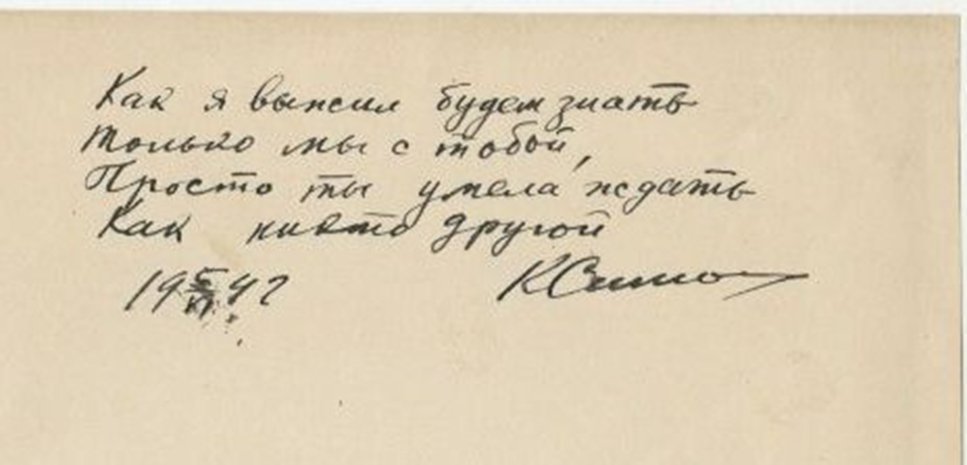 Как я выжил будем знать
только мы с тобой,
Просто ты умела ждать
Как никто другой
19 42 КСимо